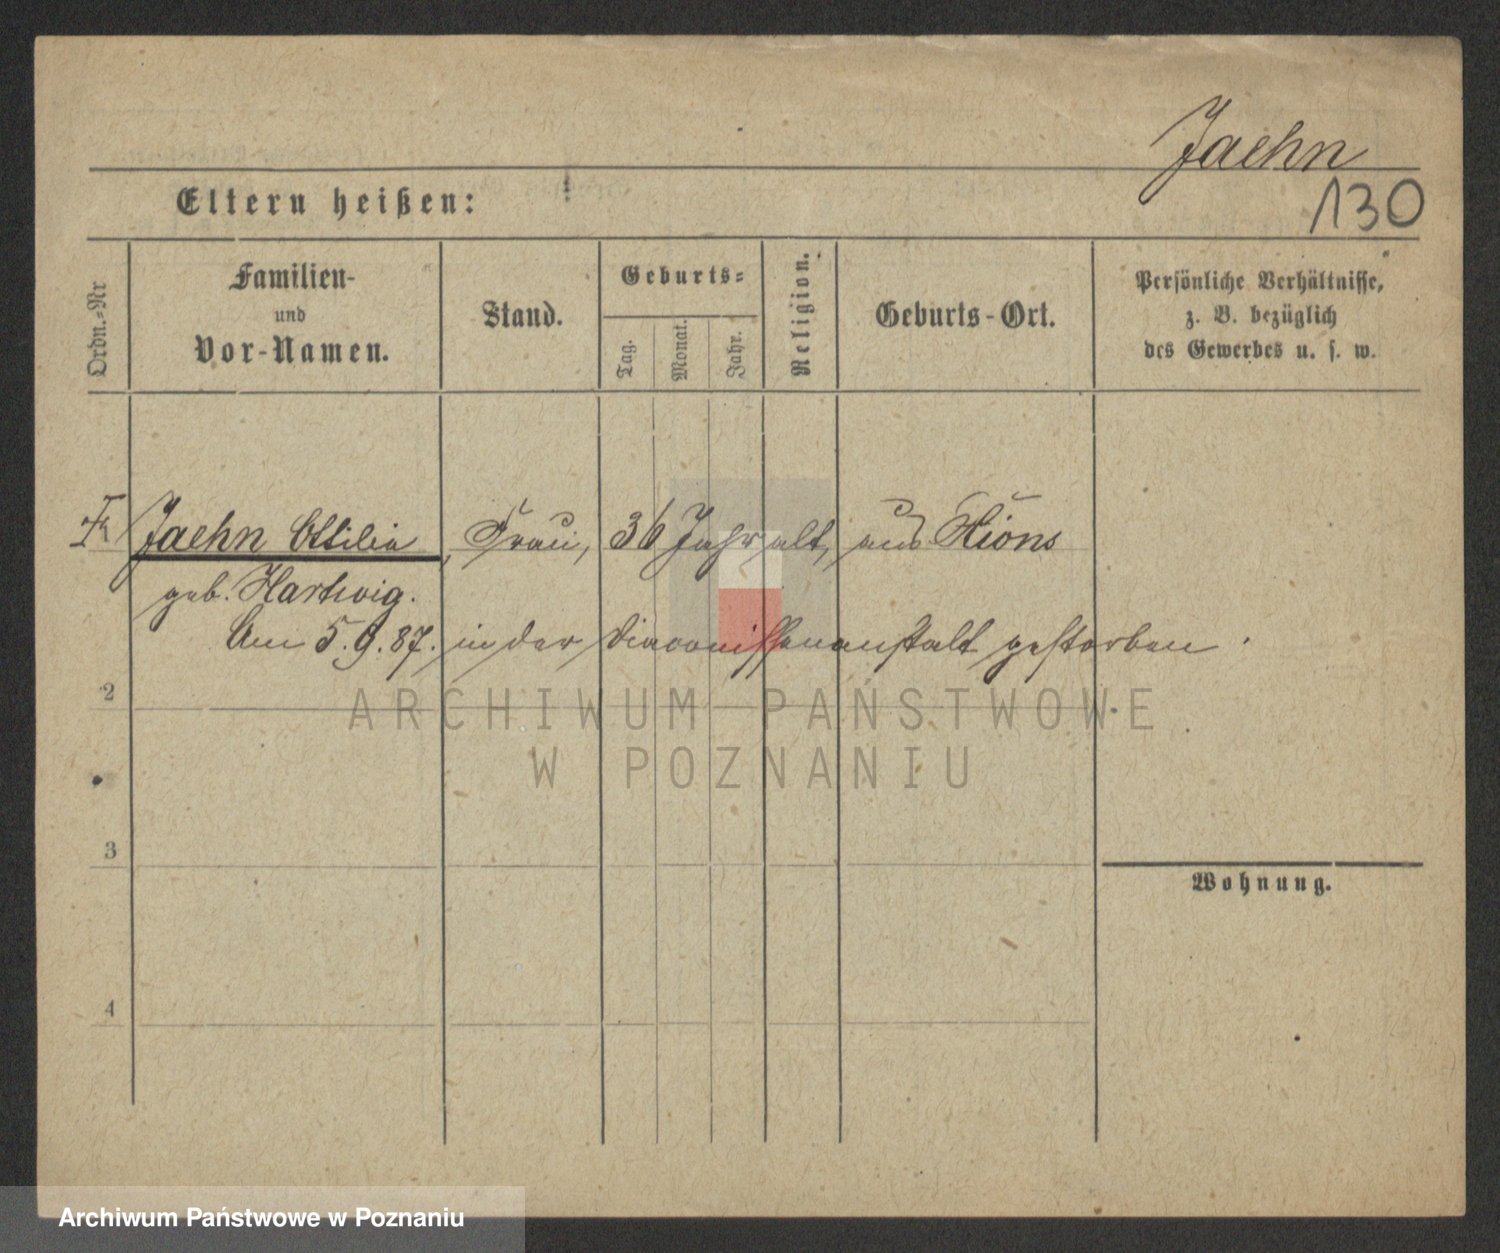 Jaehn
130
Eltern heißen:
Ordn.=Nr
Familien-
und
Vor-Namen.
Stand.
Geburts=
Tag.
Monat.
Jahr.
Religion.
Geburts-Ort.
Persönliche Verhältnisse,
z. B. bezüglich
des Gewerbes u. s. w.
Jaehn Ottilie, Frau, 36 Jahr alt, aus Xions
geb. Hartwig.
Am 5.9.87. in der Diaconissenanstalt gestorben.
2
ARCHIWUM PAŃSTWOWE
W POZNANIU
3
Wohnung.
4
Archiwum Państwowe w Poznaniu